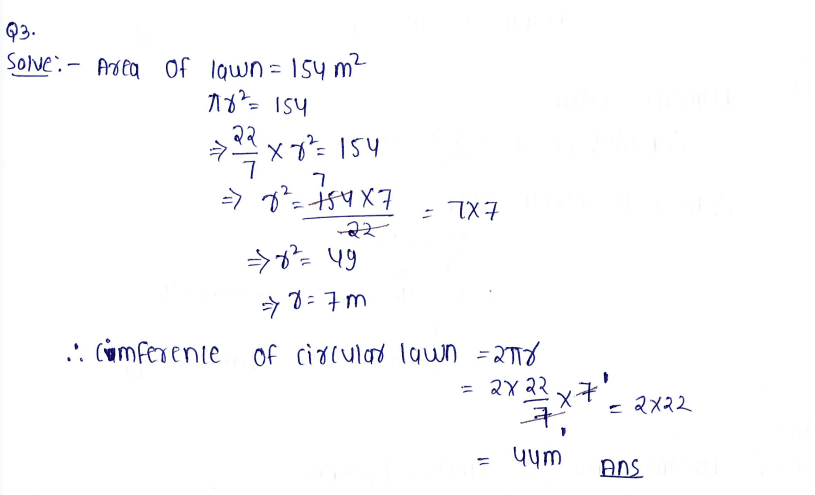 Q3.
Solve:- Area of lawn = 154 m²
πr² = 154
⇒ 22/7 × r² = 154
⇒ r² = 154 × 7 / 22 7 = 7×7
⇒ r² = 49
⇒ r = 7 m
∴ Cimference of circular lawn = 2πr
= 2× 22/7 × 7 1 1 = 2×22
= 44m Ans